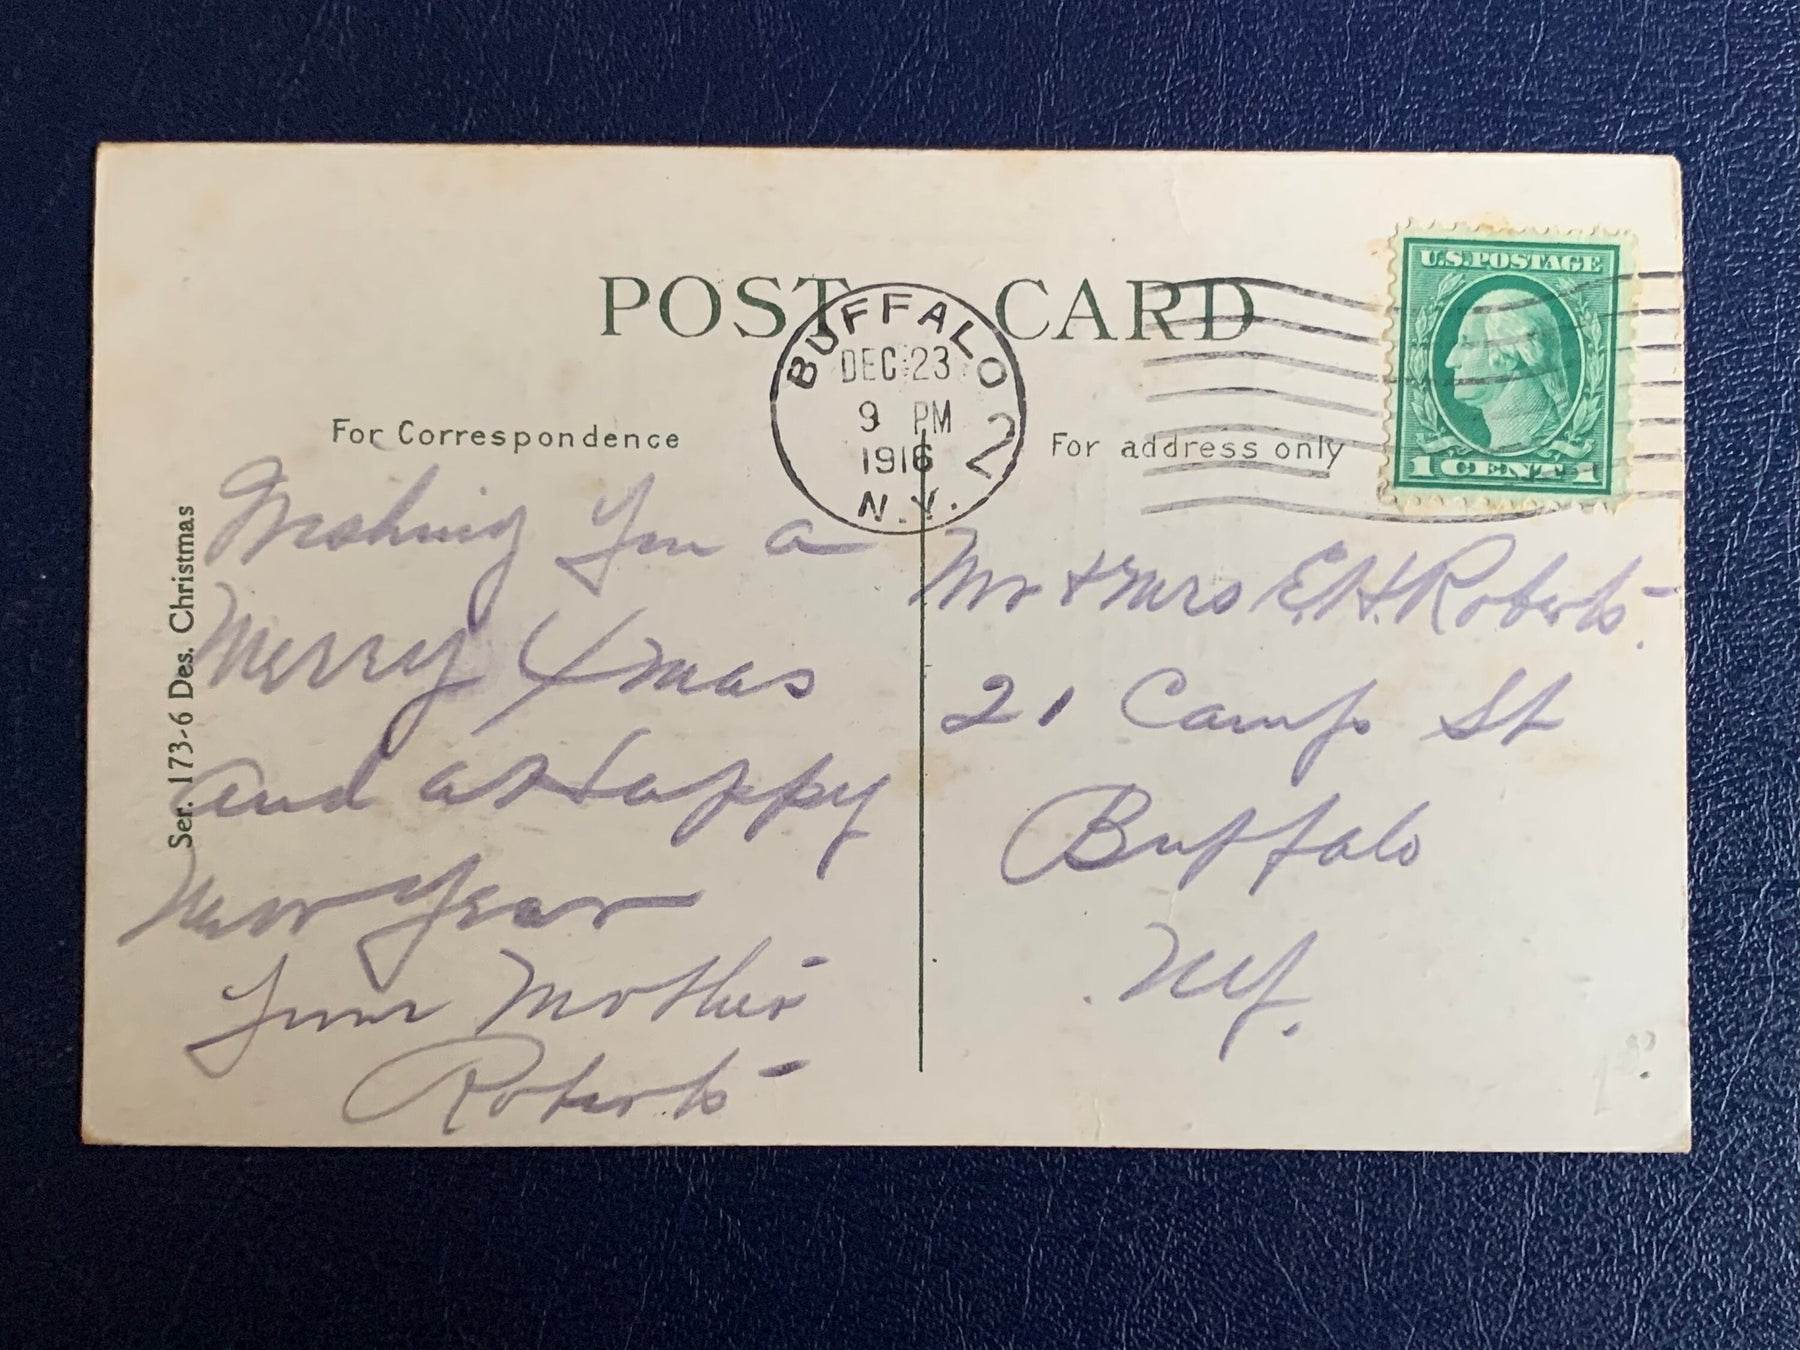 POST CARD
BUFFALO 2
DEC 23
9 PM
1916
N.Y.
U.S. POSTAGE
1 CENT 1
For Correspondence
For address only
Ser. 173-6 Des. Christmas
Wishing You a
Merry Xmas
and a Happy
New Year
from Mother
Roberts
Mr & Mrs E.H. Roberts.
21 Camp St
Buffalo
NY.